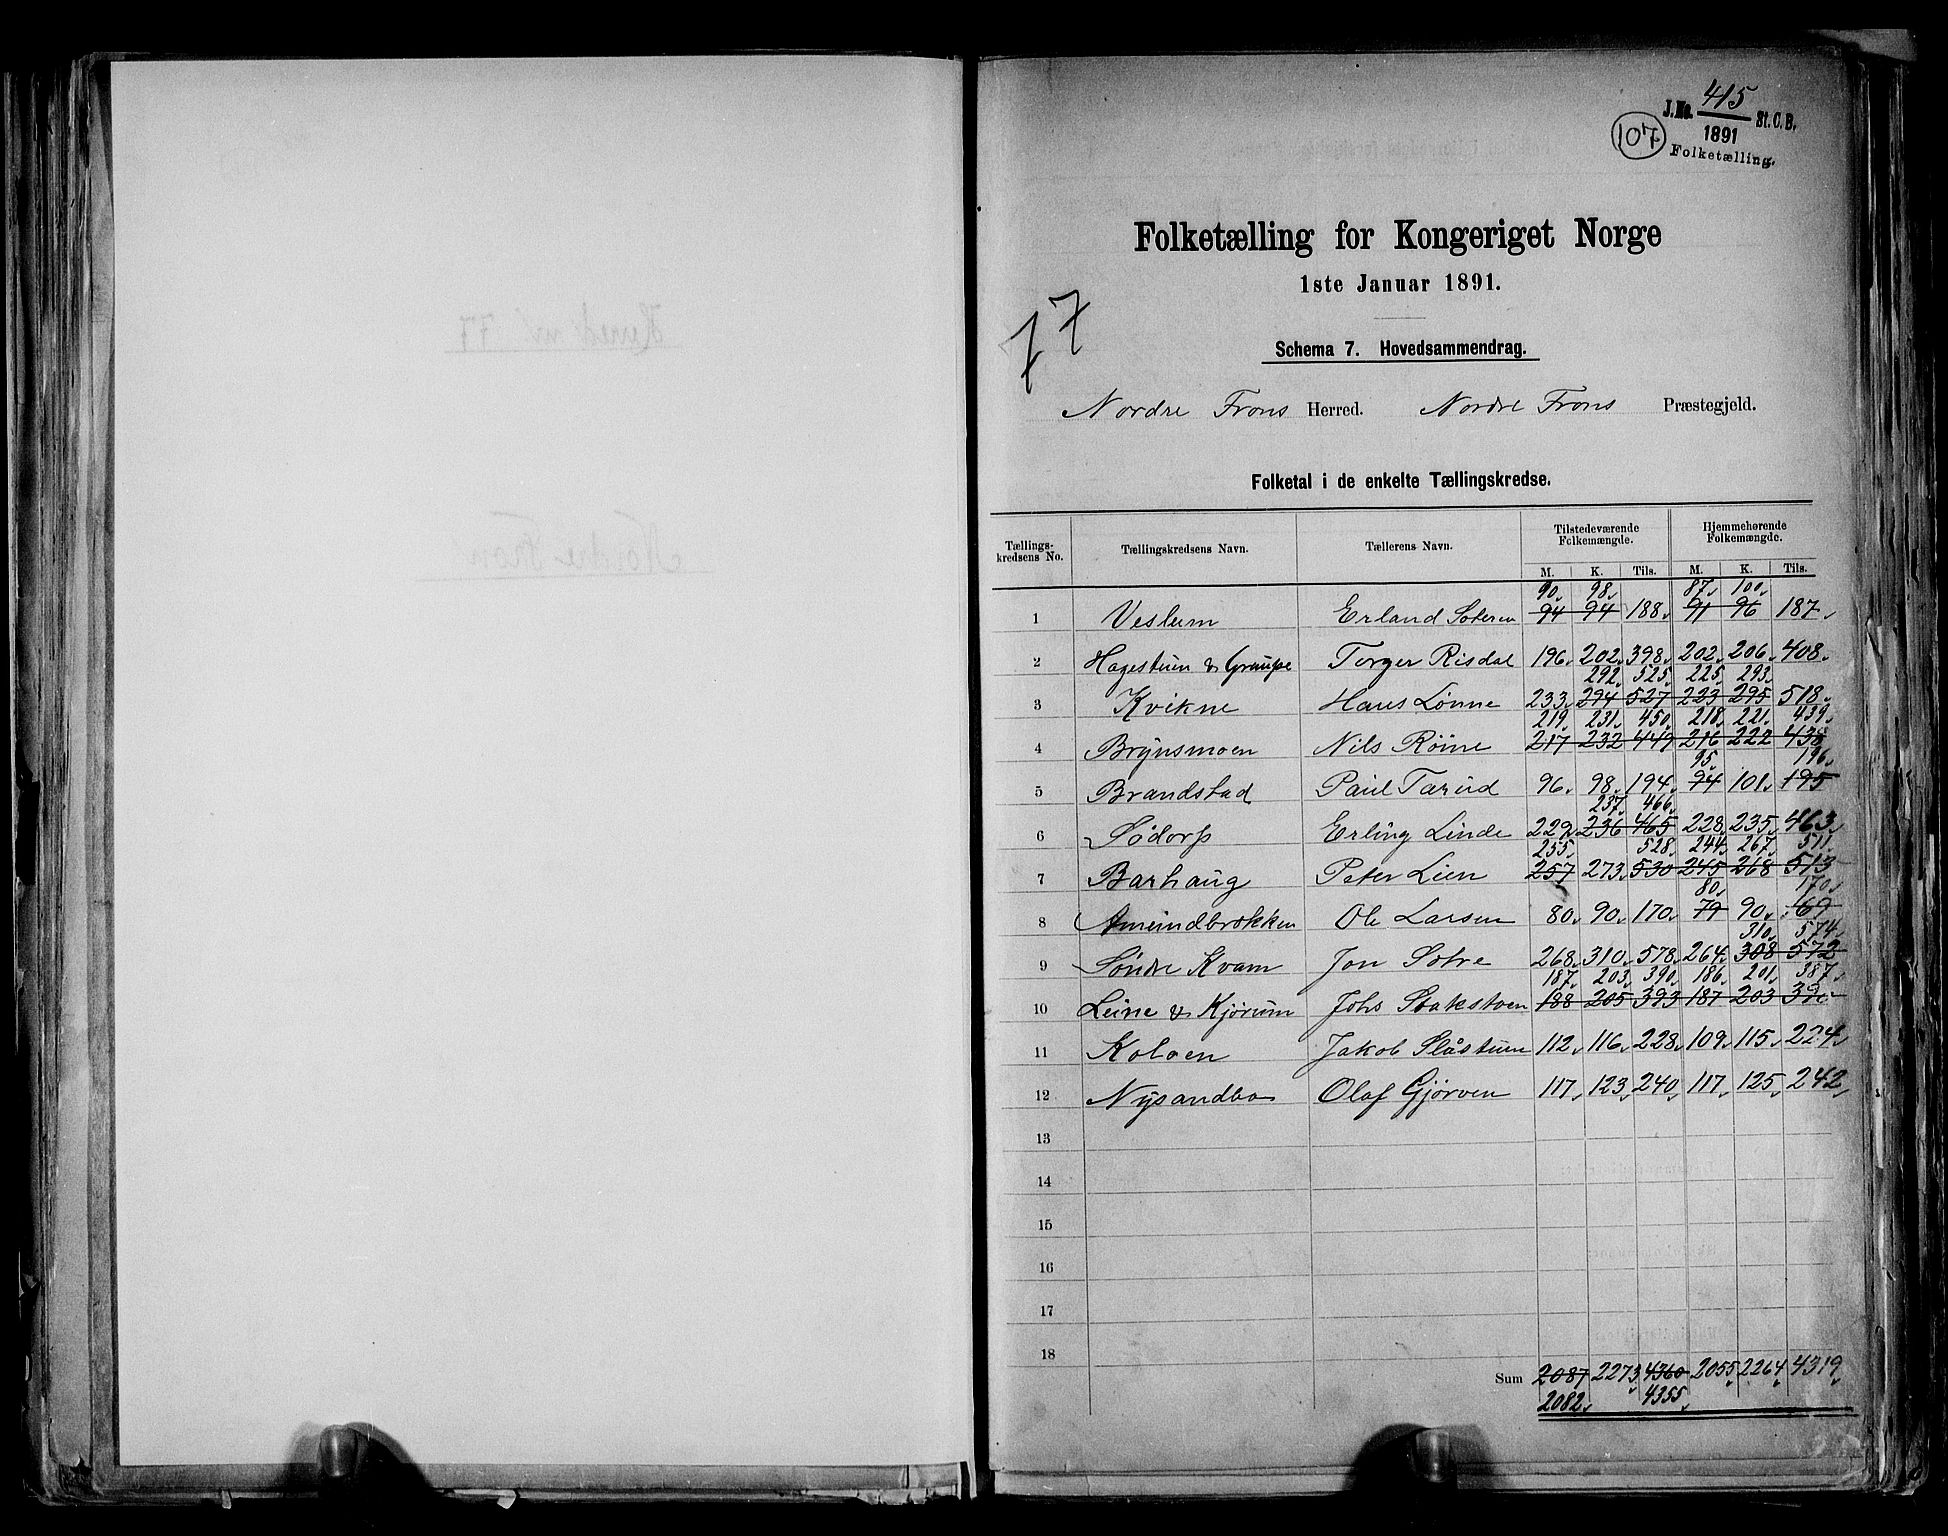 J.No. 415 St.C.B.
1891
Folketælling.
107
Folketælling for Kongeriget Norge
1ste Januar 1891.
77
Schema 7. Hovedsammendrag.
Nordre Frons Herred. Nordre Frons Præstegjeld.
Folketal i de enkelte Tællingskredse.
Tællings-kredsens No. Tællingskredsens Navn. Tællerens Navn. Tilstedeværende Folkemængde. Hjemmehørende Folkemængde.
M. K. Tils. M. K. Tils.
90 98 87 100
1 Veslum Erland 94 94 188 91 96 187
2 Hagestuen & Graupe Torger Risdal 196 202 398 202 206 408
292 525 225 293
3 Kvikne Hans Lønne 233 294 527 223 295 518
219 231 450 218 221 439
4 Brynsmoen Nils Röine 217 232 449 216 222 438
95 196
5 Brandstad Paul Tarud 96 98 194 94 101 195
237 466
6 Södorp Erling Linde 229 236 465 228 235 463
255 528 244 267 511
7 Barhaug Peter Lien 257 273 530 245 268 513
80 170
8 Ole Larsen 80 90 170 79 90 169
310 574
9 Söndre Kvam Jon Sotre 268 310 578 264 308 572
187 203 390 186 201 387
10 Leine & Kjörum Johs 188 205 393 187 203 390
11 Koloen Jakob Slåstuen 112 116 228 109 115 224
12 Nysandbo Olaf Gjörven 117 123 240 117 125 242
13
14
15
16
17
18
Sum 2087 2273 4360 2055 2264 4319
2082 4355
Herred nr 77
Nordre Fron